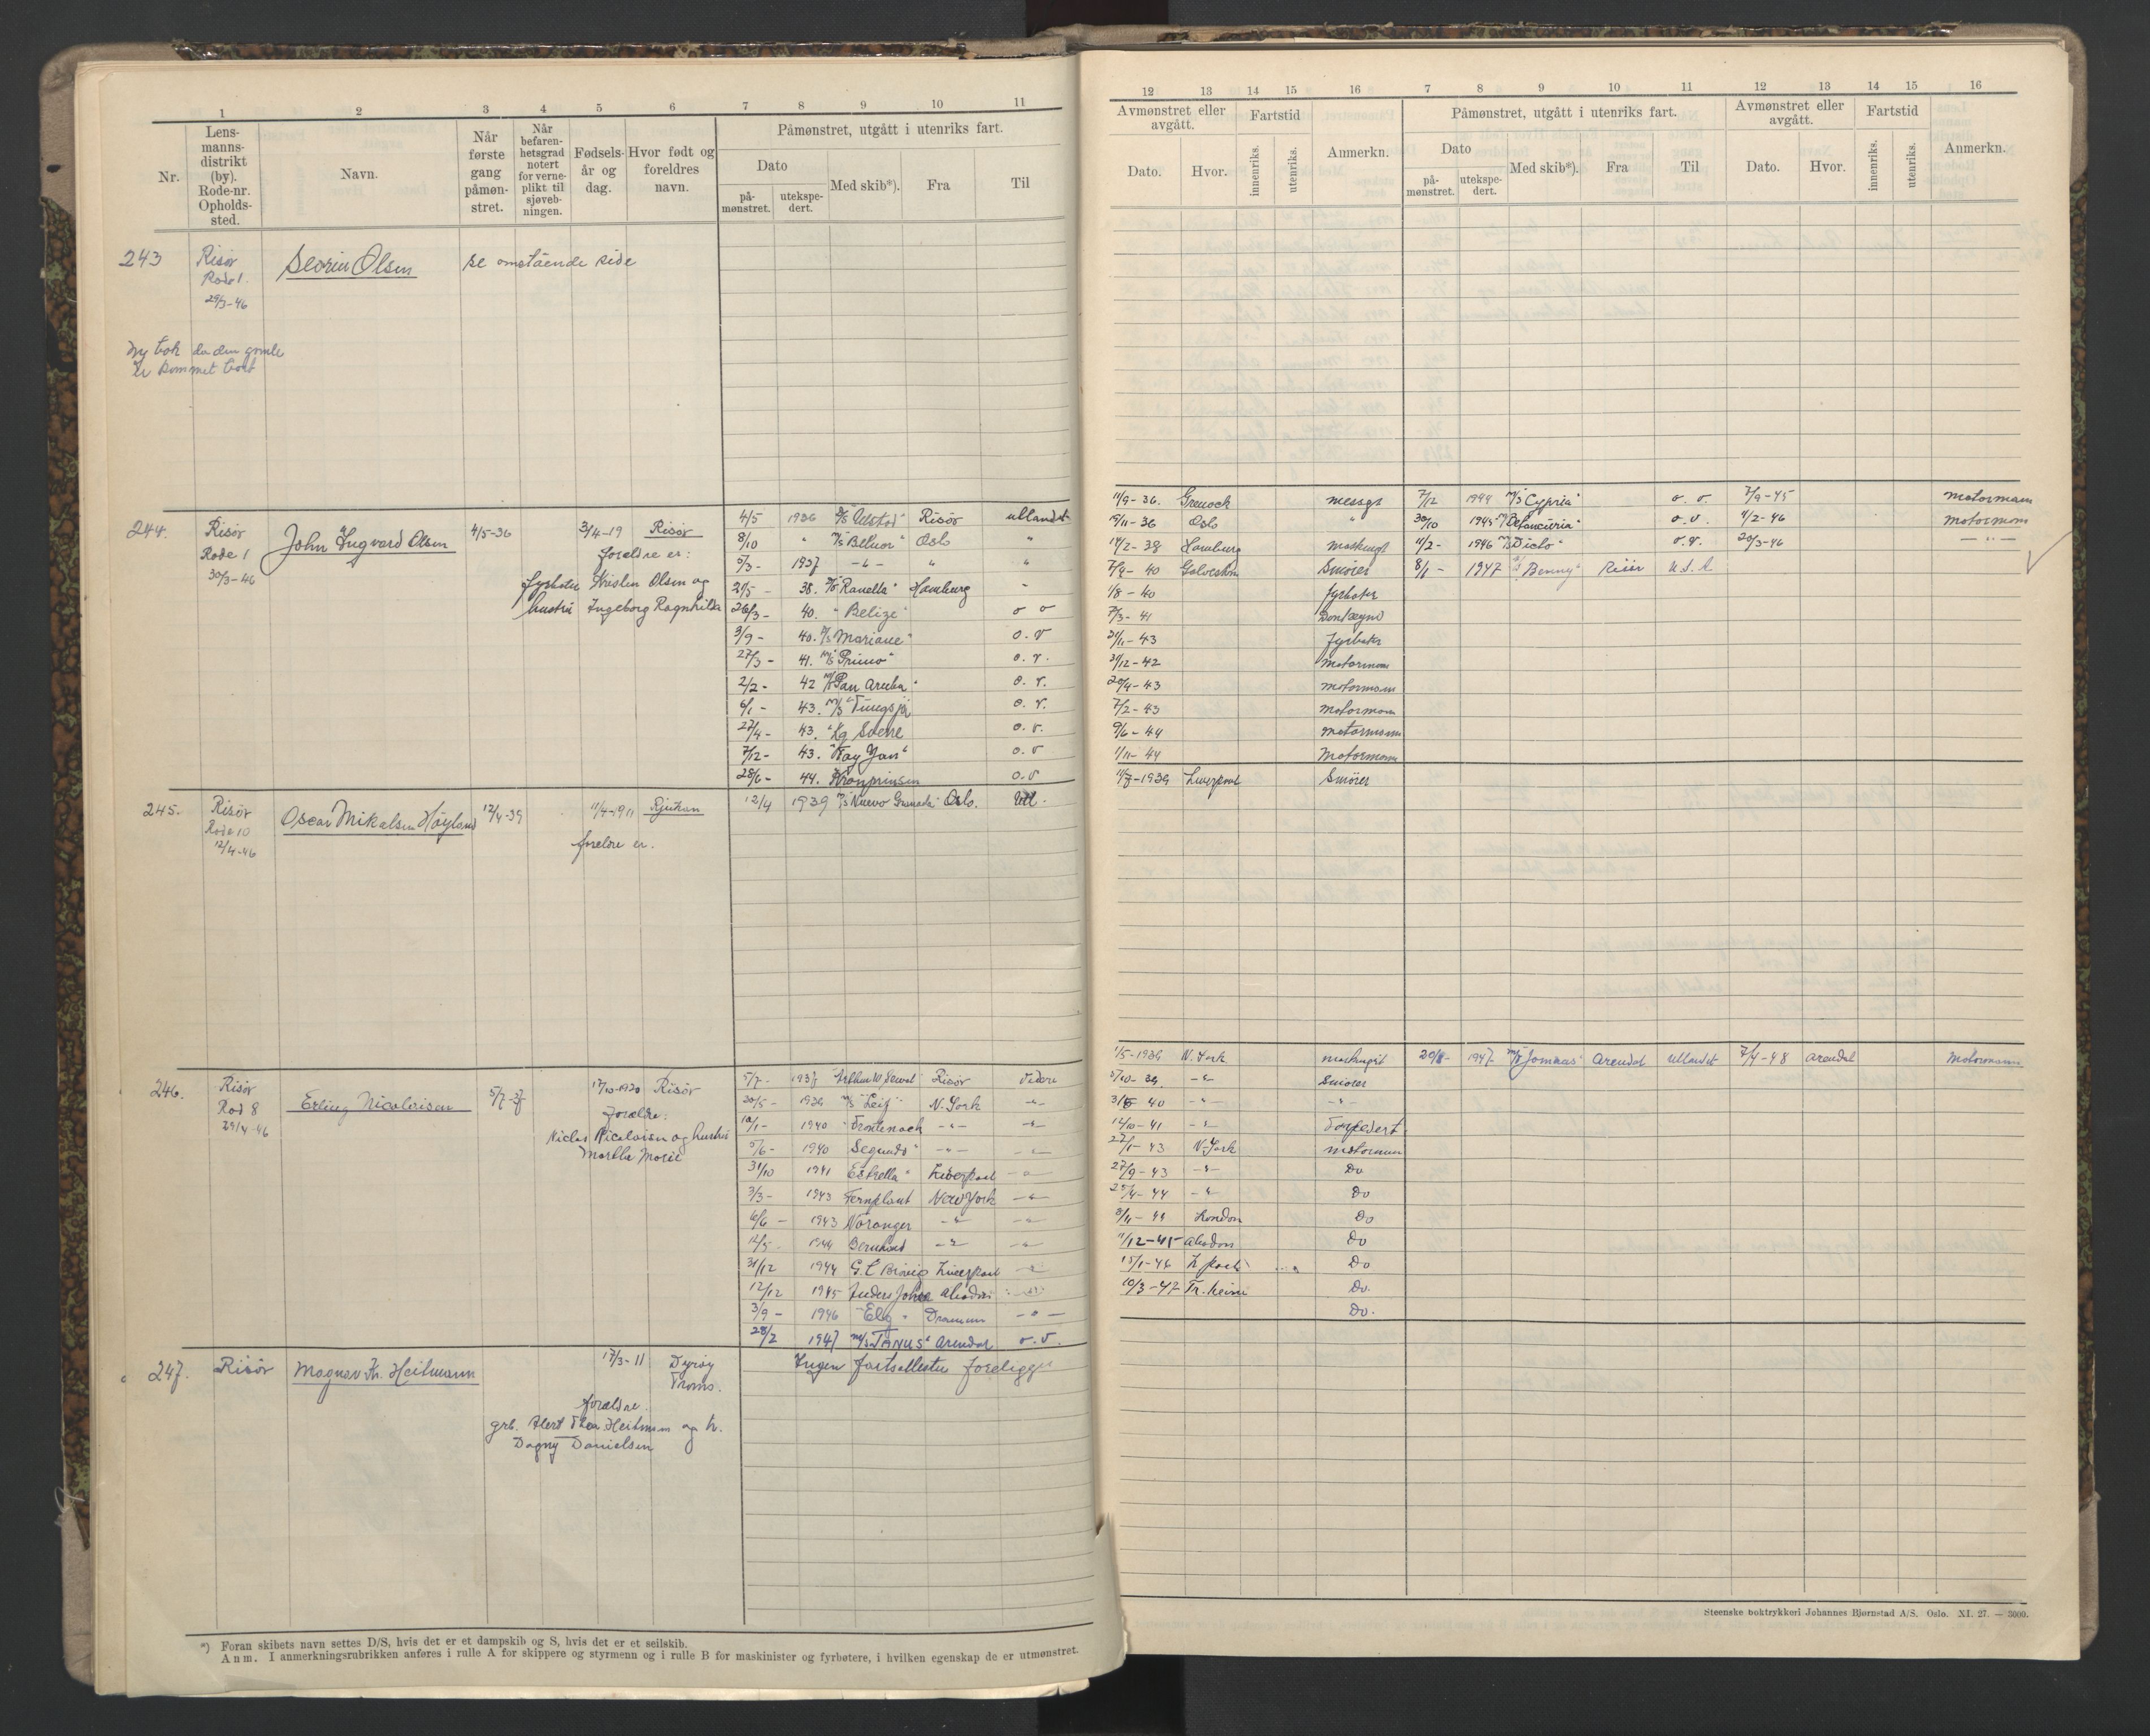 1 2 3 4 5 6 7 8 9 10 11
Nr.
Lens-
manns-
distrikt
(by).
Rode-nr.
Opholds-
sted.
Navn.
Når
første
gang
påmøn-
stret.
Når
befaren-
hetsgrad
notert
for verne-
plikt til
sjøveb-
ningen.
Fødsels-
år og
dag.
Hvor født og
foreldres
navn.
Påmønstret, utgått i utenriks fart.
Dato
på-
mønstret.
utekspe-
dert.
Med skib*).
Fra
Til
243 Risør Severin Olsen se omstående side
Rode 1.
29/3-46
Ny bok da den gamle
er kommet bort
244. Risør John Ingvard Olsen 4/5-36 3/4-19 Risør
Rode 1
30/3-46
foreldre er:
fyrbøter Kristen Olsen og
hustru Ingeborg Ragnhilda
4/5 1936 Risør utlandet
8/10 " Oslo "
5/3- 1937 -"- " "
21/5 - 38. "Ranella" Hamburg "
26/3- 40. "Belize" o v
3/9- 40. "Mariane" o.v
27/3- 41. M/S "Primo" o.v.
2/2- 42 "Pan Aruba" o.v.
6/1- 43. M/S "Tungsjø o.v.
27/4- 43. "Kg Sverre o.v.
7/12- 43. "Fay Jan" o.v
28/6- 44. Kronprinsen o.v
245. Risør Oscar Mikalsen Høyland 12/4-39 11/4-1911 Rjukan
Rode 10
12/4-46
foreldre er.
12/4 1939 "Nuevo Granada" Oslo. Utl.
246. Risør Erling Nicolaisen 5/7-37 17/10-1920 Risør
Rod 8
29/4-46
foreldre:
Niclas Nicolaisen og hustru
Martha Marie
5/7- 1937 "Arthur W. Sewal" Risør Videre
20/5- 1939 M/S "Leiv" N. York -"-
10/1- 1940 "Frontenach -"- -"-
5/6- 1940 Segundo" -"- -"-
31/10 1941 Estrella" Liverpool -"-
3/3- 1943 Fernplant New York -"-
6/6 - 1943 Noranger -"- -"-
12/5. 1944 Bernhard -"- -"-
31/12 1944 G.C. Brøvig Liverpool -"-
12/12 1945 Anders Jahre
3/9- 1946 "Elg" Drammen -"-
28/2 1947 M/S "TANUS" Arendal o.v.
247. Risør Magnar Kr. Heitmann 17/3-11 Dyrøy
Troms.
foreldre.
grb. Thor Heitmann og h.
Dagny Danielsen
Ingen foreligger
*) Foran skibets navn settes D/S, hvis det er et dampskib og S, hvis det er et seilskib.
Anm. I anmerkningsrubrikken anføres i rulle A for skippere og styrmenn og i rulle B for maskinister og fyrbøtere, i hvilken egenskap de er utmønstret.
12 13 14 15 16 7 8 9 10 11 12 13 14 15 16
Avmønstret eller
avgått.
Dato.
Hvor.
Fartstid
innenriks.
utenriks.
Anmerkn.
Påmønstret, utgått i utenriks fart.
Dato
på-
mønstret.
utekspe-
dert.
Med skib*).
Fra
Til
Avmønstret eller
avgått.
Dato.
Hvor.
Fartstid
innenriks.
utenriks.
Anmerkn.
11/9-36. Grenock messgt 7/12 1944 M/S "Cypria" o. v. 7/9-45 motormann
19/11-36 Oslo " 30/10 1945 o.v. 4/2-46 motormann
14/2-38 Hamburg Maskingt 11/2- 1946 M/S "Dicto" o.v. 20/3-46 -"-
7/9- 40 Galveston Smører 8/1- 1947 "Benny" Risør U.S.A
1/8-40 fyrbøter
7/3-41 Donkeymd
21/11-43 fyrbøter
31/12-42 Motormann
20/4-43 motormann
7/2-43 motormann
9/6-44 motormann
1/11-44 Motormann
11/7-1939 Liverpool Smører
1/5-1939 N. York maskingt 20/8- 1947 M/S "Jommas" Arendal utlandet 7/4-48 Arendal Motormann
5/10-39. -"- Smører
3/5-40 -"- -"-
12/10-41 -"- Torpedert
27/1-43 N.York motormann
27/9-43 -"- Do
25/4-44 -"- Do
3/11-44 London Do
11/12-45 Do
15/1-46 Do
10/3-47 Tr.heim Do.
Do.
Steenske boktrykkeri Johannes Bjørnstad A/S. Oslo. XI. 27. — 3000.